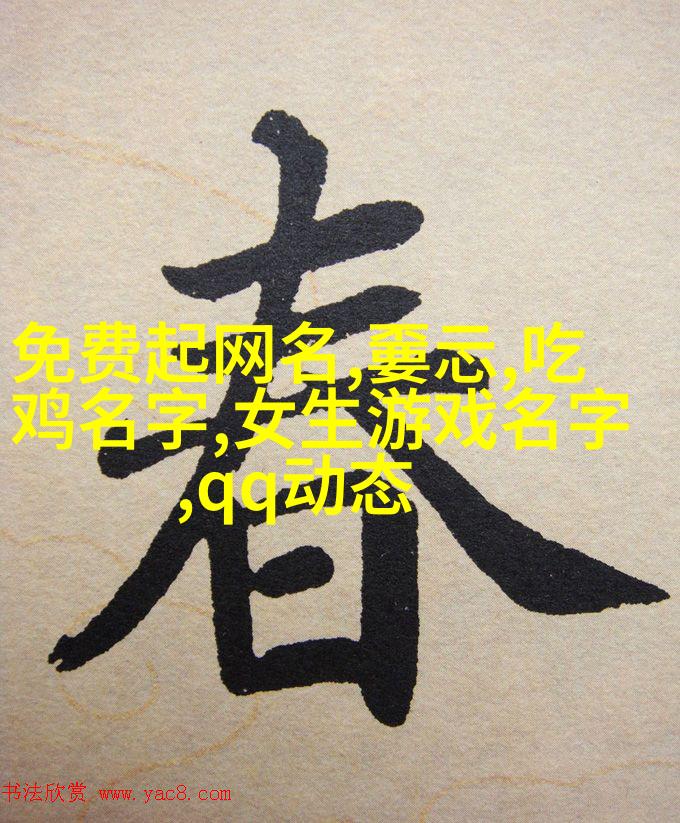 春
免费起网名,嫑忈,吃
鸡名字,女生游戏名字
,qq动态
书法欣赏 www.yac8.com